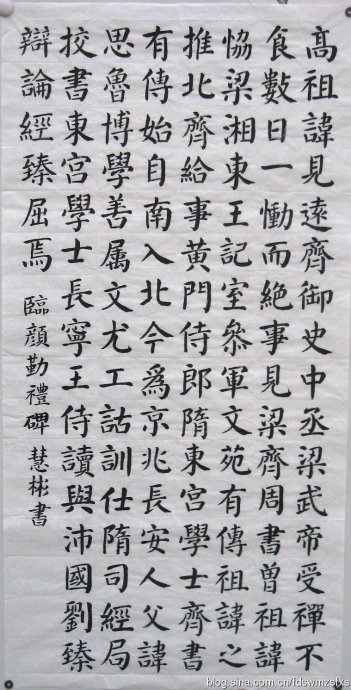 高祖諱見遠齊御史中丞梁武帝受禪不
食數日一慟而絕事見梁齊周書曾祖諱
恊梁湘東王記室叅軍文苑有傳祖諱之
推北齊給事黃門侍郎隋東宮學士齊書
有傳始自南入北今爲京兆長安人父諱
思魯博學善屬文尤工詁訓仕隋司經局
挍書東宮學士長寧王侍讀與沛國劉臻
辯論經臻屈焉
臨顏勤禮碑 慧彬書
blog.sina.com.cn/fdswmzsfxs